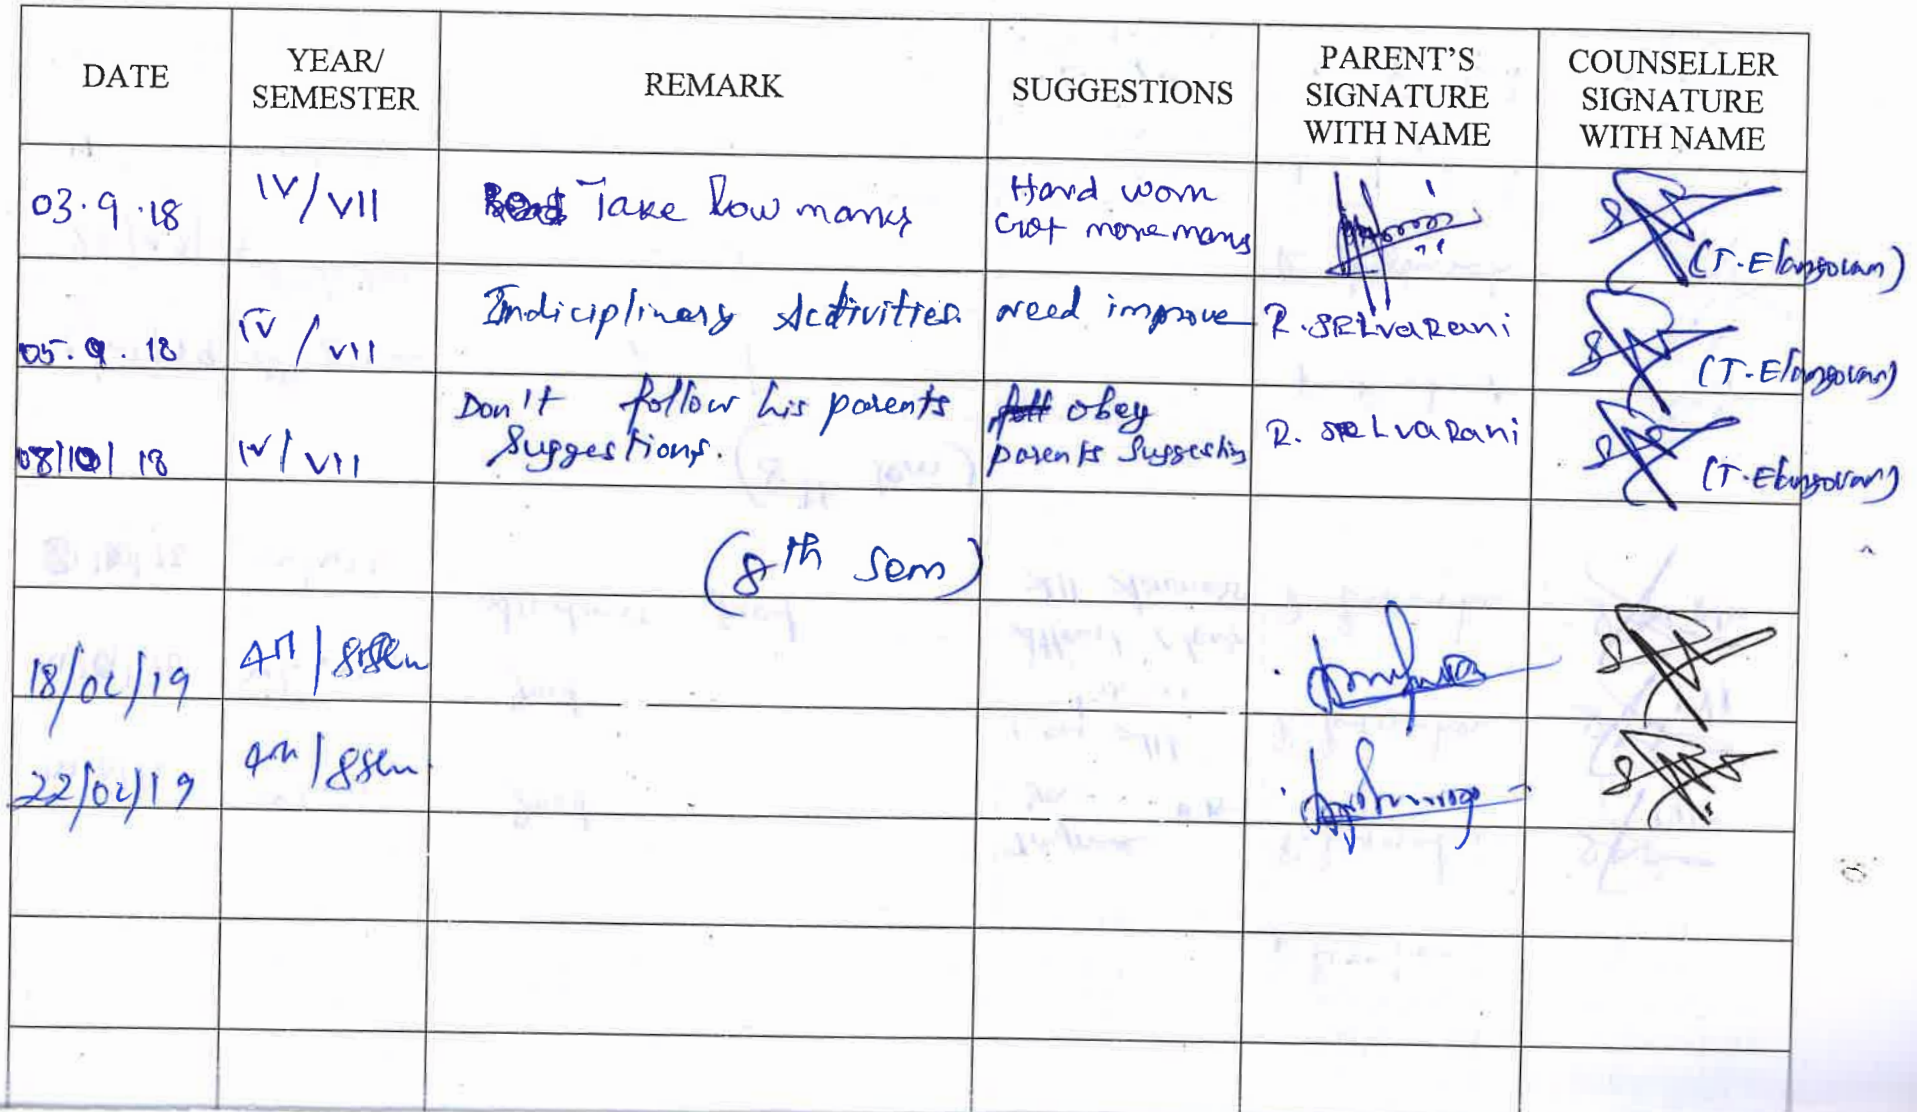 DATE YEAR/ SEMESTER REMARK SUGGESTIONS PARENT'S SIGNATURE WITH NAME COUNSELLER SIGNATURE WITH NAME
03.9.18 IV/VII Take low marks Hard work
Got more marks
(T. Elangovan)
05.9.18 IV/VII Indiciplinary Activities. need improve R. SELVARANI (T. Elangovan)
08/10/18 IV/VII Don't follow his parents
Suggestions. obey
parents Suggestions R. SELVARANI (T. Elangovan)
(8th Sem)
18/02/19
22/02/19